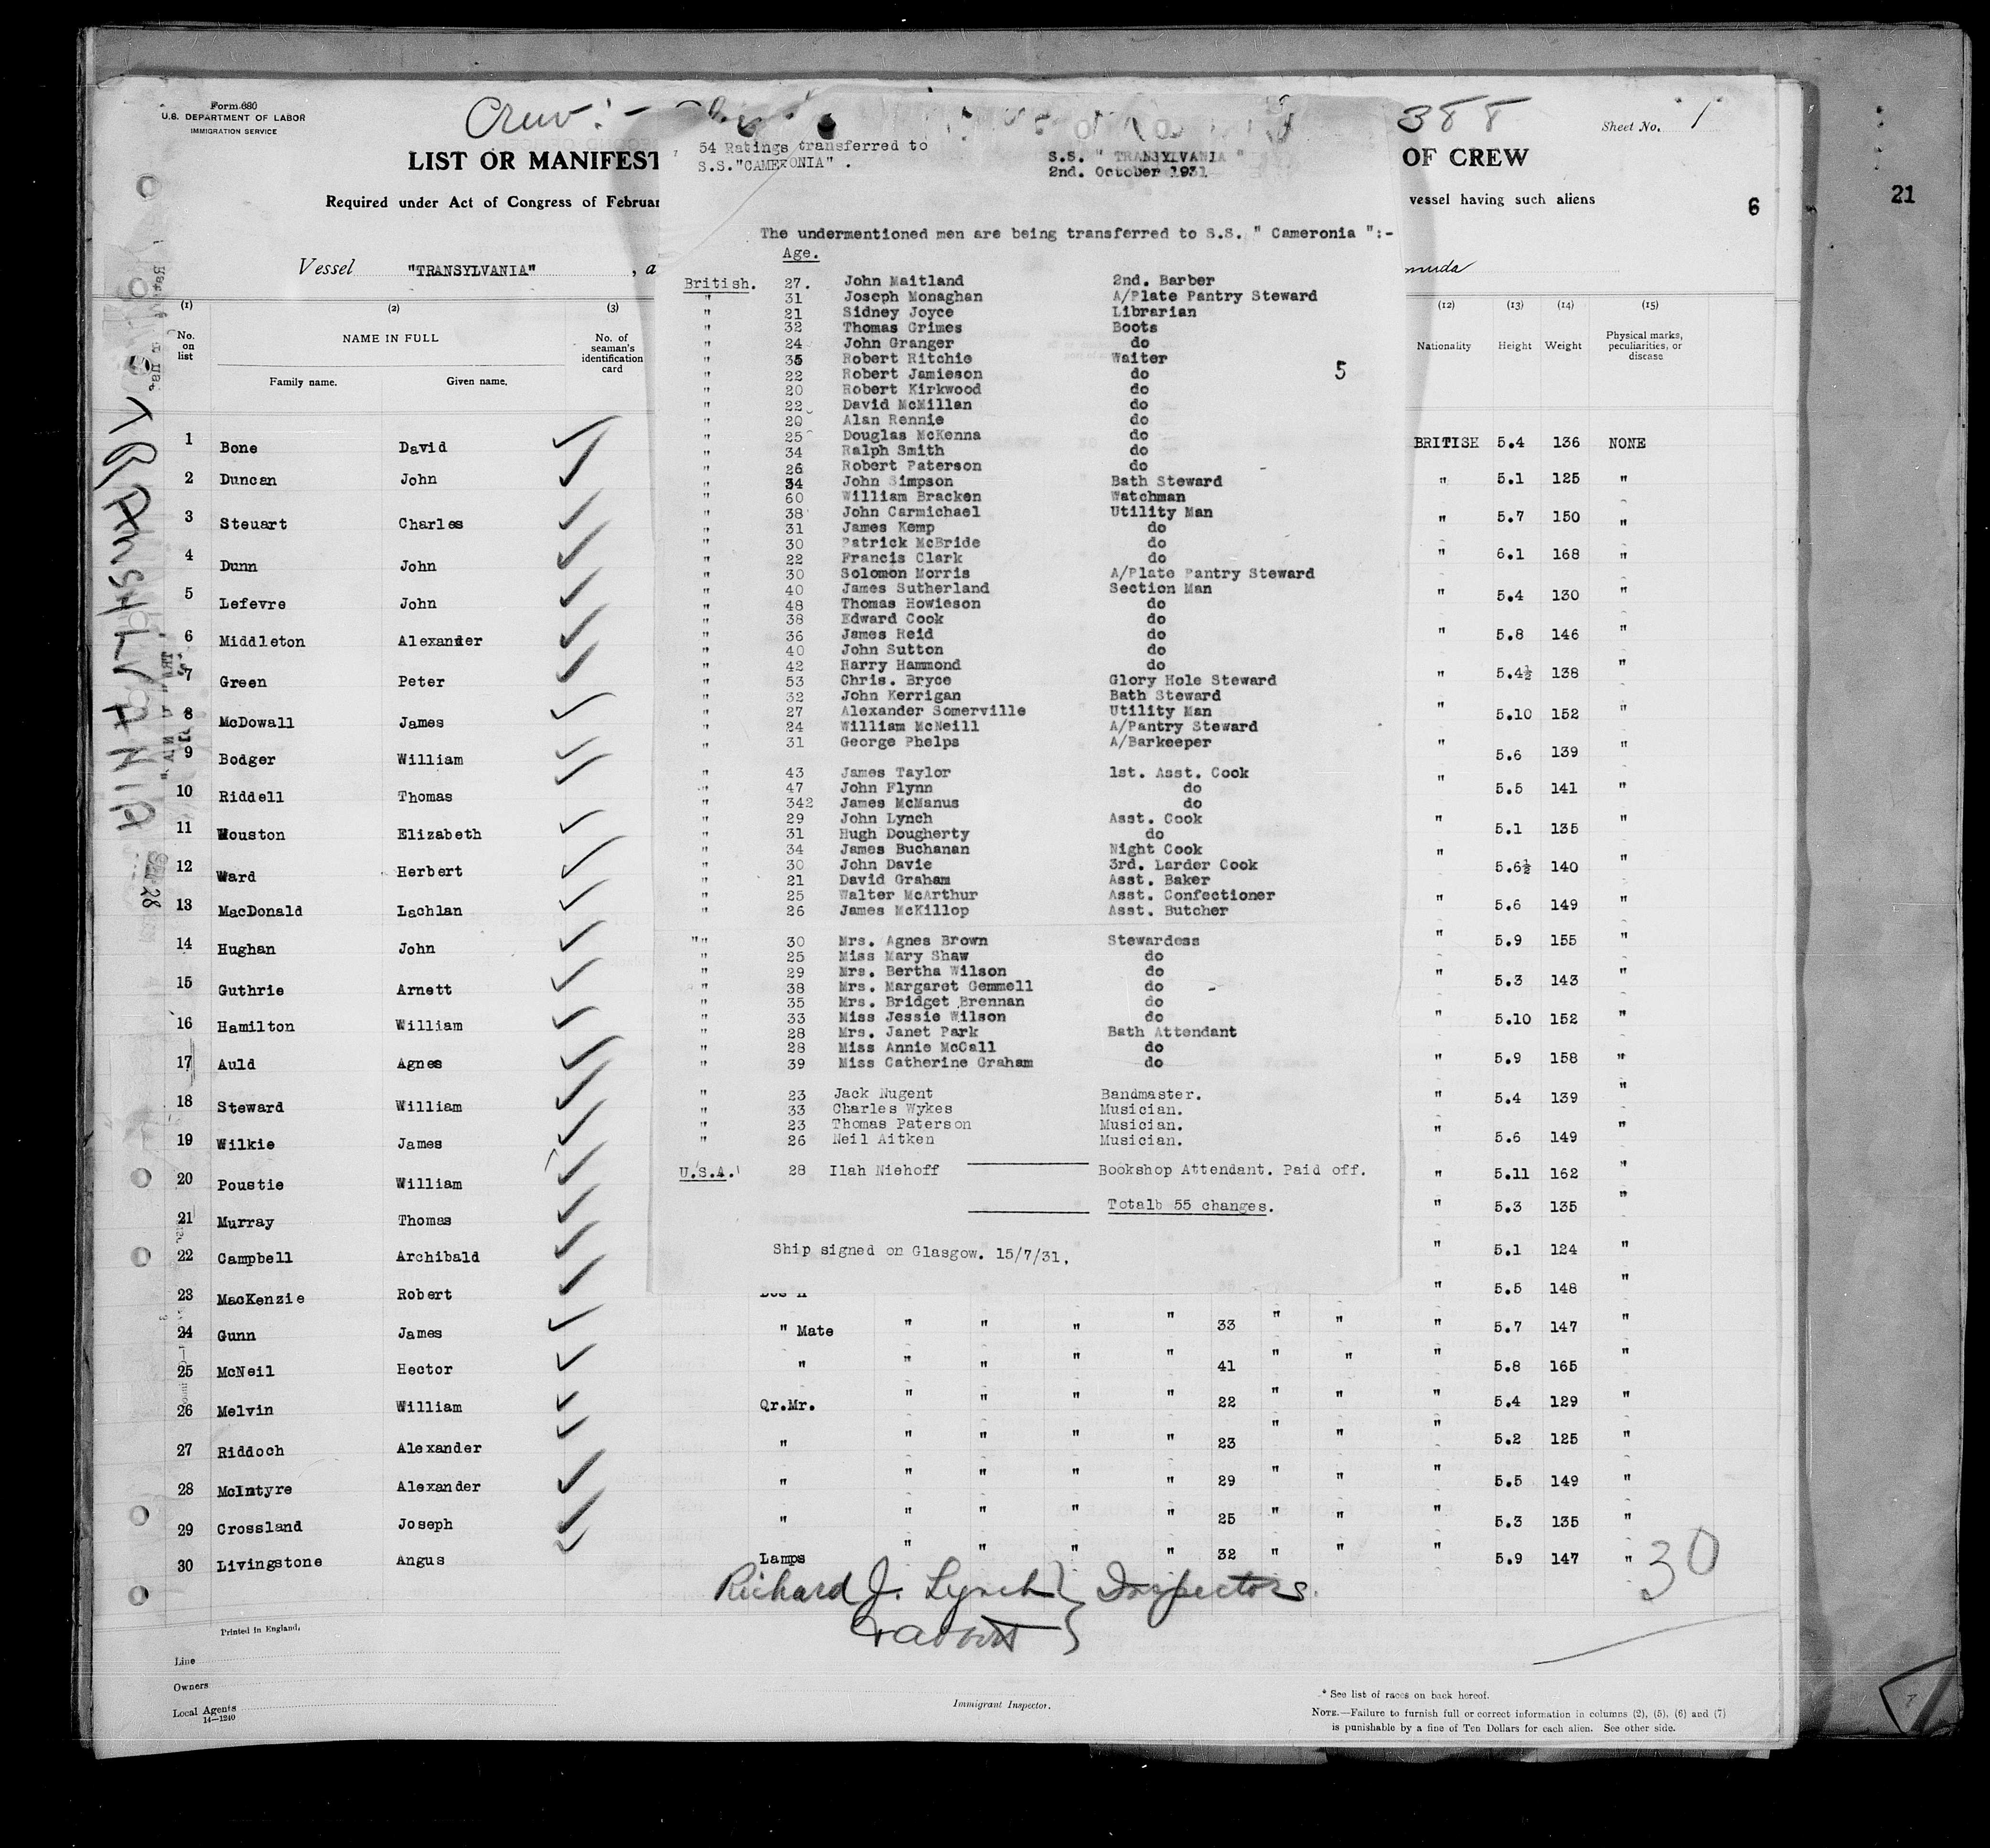 Form 680
U.S. DEPARTMENT OF LABOR
IMMIGRATION SERVICE
Crew:-
388
Sheet No. 1
LIST OR MANIFEST
OF CREW
Required under Act of Congress of Februar
vessel having such aliens
6
21
Vessel "TRANSYLVANIA" , a
muda
54 Ratings transferred to
S.S."CAMERONIA" .
S.S. " TRANSYLVANIA "
2nd. October 1931
The undermentioned men are being transferred to S.S. " Cameronia ":-
Age.
British. 27. John Maitland 2nd. Barber
" 31 Joseph Monaghan A/Plate Pantry Steward
" 21 Sidney Joyce Librarian
" 32 Thomas Grimes Boots
" 24 John Granger do
" 35 Robert Ritchie Waiter
" 22 Robert Jamieson do
5
" 20 Robert Kirkwood do
" 22 David McMillan do
" 20 Alan Rennie do
" 25 Douglas McKenna do
" 34 Ralph Smith do
" 26 Robert Paterson do
" 34 John Simpson Bath Steward
" 60 William Bracken Watchman
" 38 John Carmichael Utility Man
" 31 James Kemp do
" 30 Patrick McBride do
" 22 Francis Clark do
" 30 Solomon Morris A/Plate Pantry Steward
" 40 James Sutherland Section Man
" 48 Thomas Howieson do
" 38 Edward Cook do
" 36 James Reid do
" 40 John Sutton do
" 42 Harry Hammond do
" 53 Chris. Bryce Glory Hole Steward
" 32 John Kerrigan Bath Steward
" 27 Alexander Somerville Utility Man
" 24 William McNeill A/Pantry Steward
" 31 George Phelps A/Barkeeper
" 43 James Taylor 1st. Asst. Cook
" 47 John Flynn do
" 342 James McManus do
" 29 John Lynch Asst. Cook
" 31 Hugh Dougherty do
" 34 James Buchanan Night Cook
" 30 John Davie 3rd. Larder Cook
" 21 David Graham Asst. Baker
" 25 Walter McArthur Asst. Confectioner
" 26 James McKillop Asst. Butcher
"" 30 Mrs. Agnes Brown Stewardess
" 25 Miss Mary Shaw do
" 29 Mrs. Bertha Wilson do
" 38 Mrs. Margaret Gemmell do
" 35 Mrs. Bridget Brennan do
" 33 Miss Jessie Wilson do
" 28 Mrs. Janet Park Bath Attendant
" 28 Miss Annie McCall do
" 39 Miss Catherine Graham do
" 23 Jack Nugent Bandmaster.
" 33 Charles Wykes Musician.
" 23 Thomas Paterson Musician.
" 26 Neil Aitken Musician.
U.S.A. 28 Ilah Niehoff Bookshop Attendant. Paid off.
Totalb 55 changes.
Ship signed on Glasgow. 15/7/31.
(1) (2) (3) (12) (13) (14) (15)
No. on list
NAME IN FULL
Family name. Given name.
No. of seaman's identification card
Nationality Height Weight Physical marks, peculiarities, or disease
1 Bone David BRITISH 5.4 136 NONE
2 Duncan John " 5.1 125 "
3 Steuart Charles " 5.7 150 "
4 Dunn John " 6.1 168 "
5 Lefevre John " 5.4 130 "
6 Middleton Alexander " 5.8 146 "
7 Green Peter " 5.4½ 138 "
8 McDowall James " 5.10 152 "
9 Bodger William " 5.6 139 "
10 Riddell Thomas " 5.5 141 "
11 Wouston Elizabeth " 5.1 135 "
12 Ward Herbert " 5.6½ 140 "
13 MacDonald Lachlan " 5.6 149 "
14 Hughan John " 5.9 155 "
15 Guthrie Arnett " 5.3 143 "
16 Hamilton William " 5.10 152 "
17 Auld Agnes " 5.9 158 "
18 Steward William " 5.4 139 "
19 Wilkie James " 5.6 149 "
20 Poustie William " 5.11 162 "
21 Murray Thomas " 5.3 135 "
22 Campbell Archibald " 5.1 124 "
23 MacKenzie Robert " 5.5 148 "
24 Gunn James " Mate " " " " 33 " " " 5.7 147 "
25 McNeil Hector " " " " " 41 " " " 5.8 165 "
26 Melvin William Qr.Mr. " " " " 22 " " " 5.4 129 "
27 Riddoch Alexander " " " " " 23 " " " 5.2 125 "
28 McIntyre Alexander " " " " " 29 " " " 5.5 149 "
29 Crossland Joseph " " " " " 25 " " " 5.3 135 "
30 Livingstone Angus Lamps " " " " 32 " " " 5.9 147 "
30
Richard J. Lynch } Inspectors.
Printed in England.
Line
Owners
Local Agents
14—1240
Immigrant Inspector.
* See list of races on back hereof.
NOTE.—Failure to furnish full or correct information in columns (2), (5), (6) and (7)
is punishable by a fine of Ten Dollars for each alien. See other side.
TRANSYLVANIA